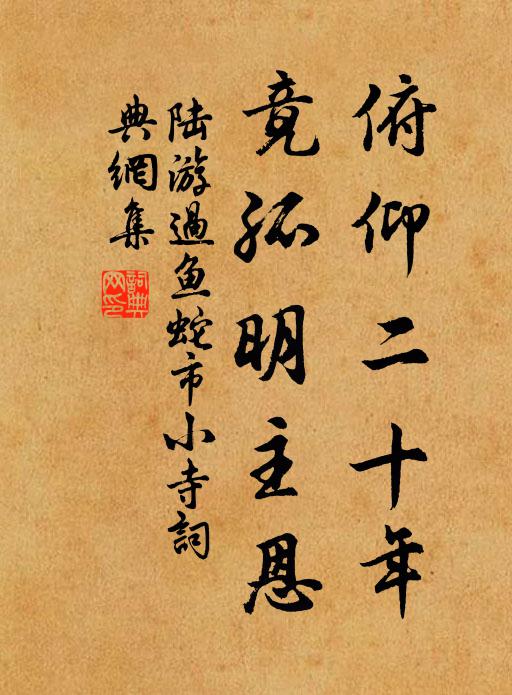 俯仰二十年
竟孤明主恩
陆游過鱼蛇市小寺詞
典網集
詞典網印